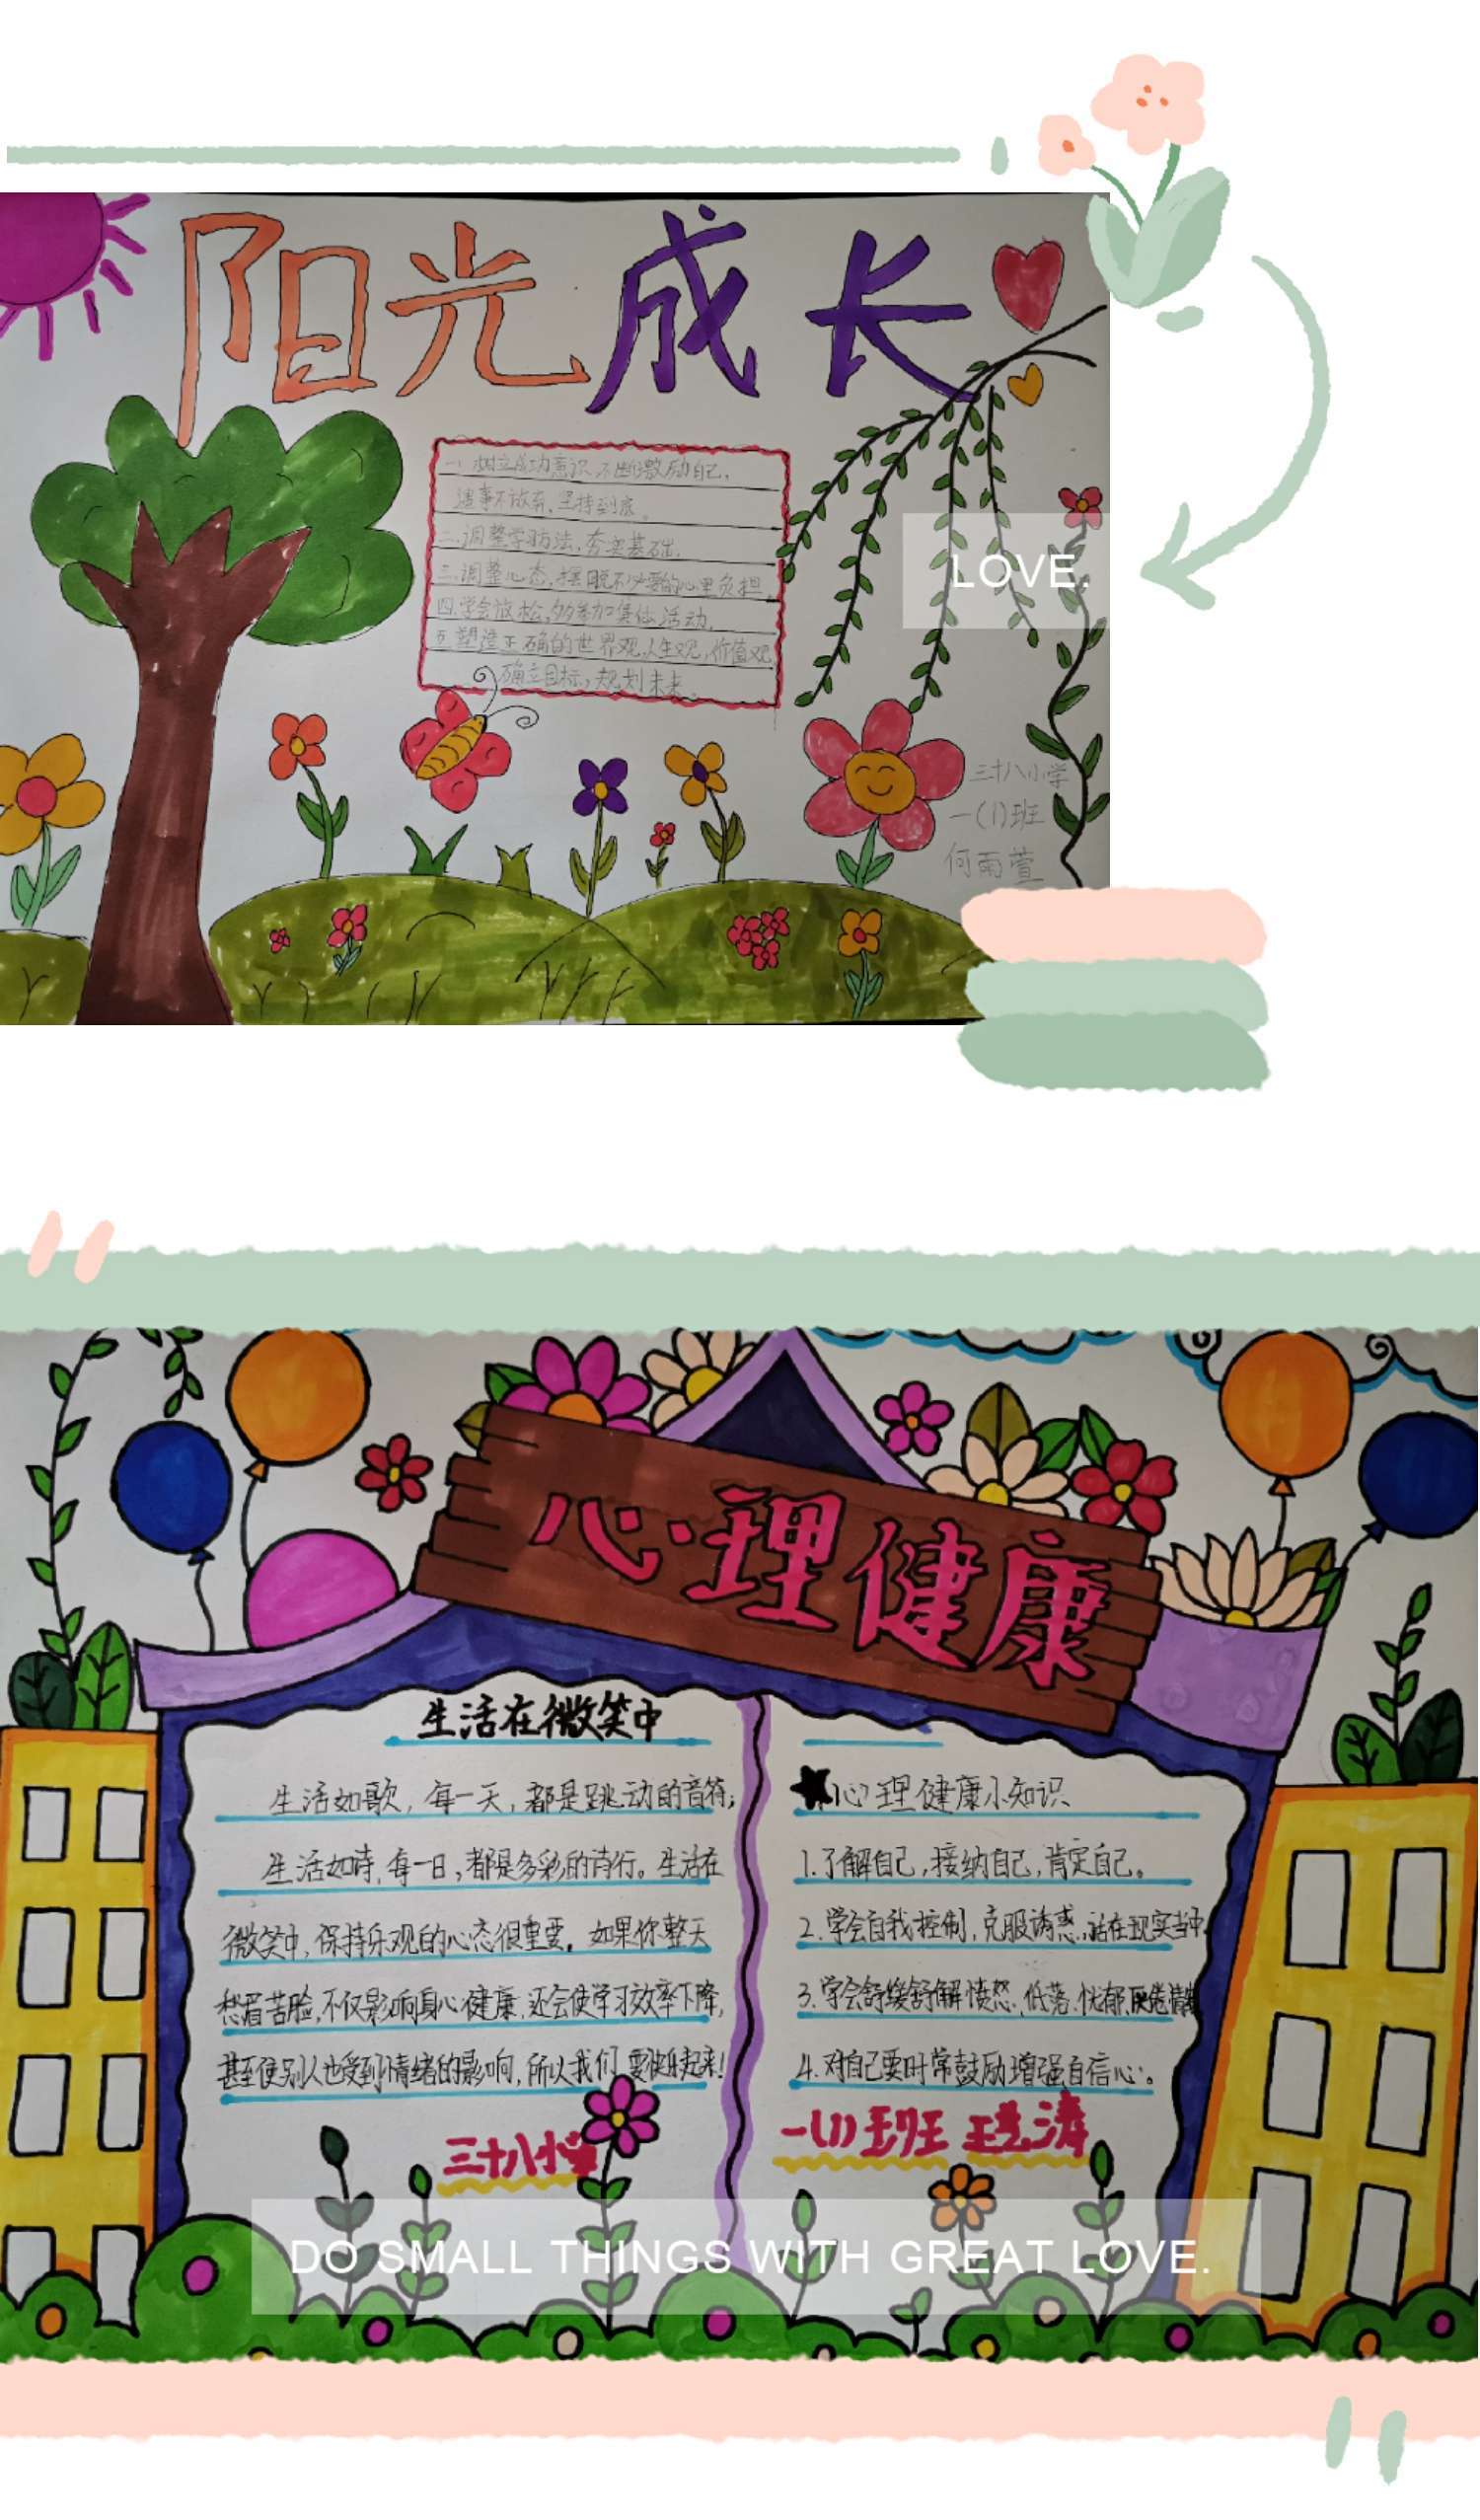 阳光成长
一.树立成功意识,不断激励自己,
遇事不放弃,坚持到底。
二.调整学习方法,夯实基础.
三.调整心态,摆脱不必要的心里负担.
四.学会放松,多参加集体活动.
五.塑造正确的世界观,人生观,价值观
确立目标,规划未来.
LOVE.
三十八小学
一(1)班
何雨萱
心理健康
生活在微笑中
生活如歌,每一天,都是跳动的音符;
生活如诗,每一日,都是多彩的诗行。生活在
微笑中,保持乐观的心态很重要。如果你整天
愁眉苦脸,不仅影响身心健康,还会使学习效率下降,
甚至使别人也受到情绪的影响,所以我们要快乐起来!
三十八小学
★心理健康小知识
1.了解自己,接纳自己,肯定自己。
2.学会自我控制,克服诱惑,活在现实当中.
3.学会舒缓舒解愤怒、低落、忧郁、厌倦情绪
4.对自己要时常鼓励增强自信心。
一(1)班
DO SMALL THINGS WITH GREAT LOVE.